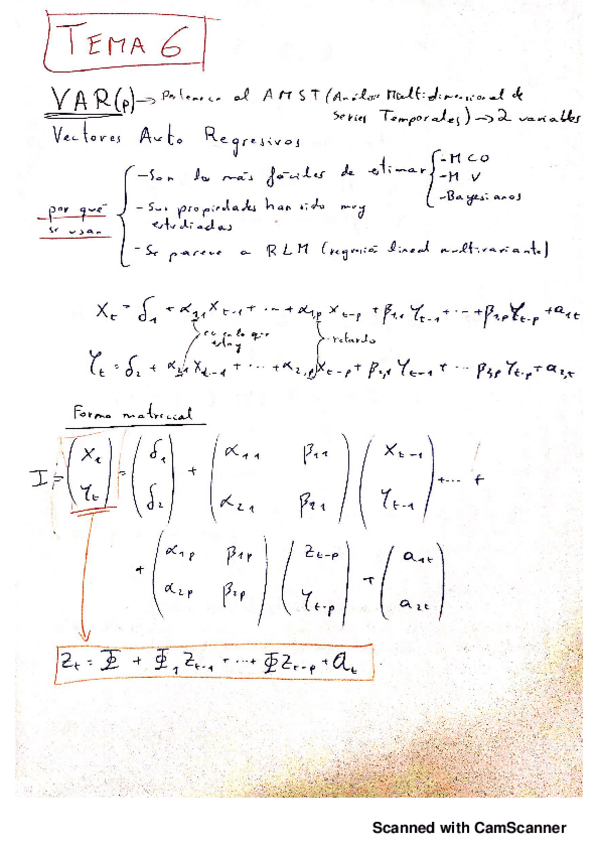 TEMA 6
VAR(p) → Pertenece al AMST (Análisis Multidimensional de
Series Temporales) → 2 variables
Vectores Auto Regresivos
por qué se usan
- Son los más fáciles de estimar
- MCO
- MV
- Bayesianos
- Sus propiedades han sido muy
estudiadas
- Se parece a RLM (regresión lineal multivariante)
X_t = δ_1 + α_{1,1} X_{t-1} + ... + α_{1,p} X_{t-p} + β_{1,1} Y_{t-1} + ... + β_{1,p} Y_{t-p} + a_{1t}
en la que
estoy
retardo
Y_t = δ_2 + α_{2,1} X_{t-1} + ... + α_{2,p} X_{t-p} + β_{2,1} Y_{t-1} + ... β_{2,p} Y_{t-p} + a_{2,t}
Forma matricial
(X_t Y_t) = (δ_1 δ_2) + (α_{11} β_{11} α_{21} β_{21}) (X_{t-1} Y_{t-1}) + ... +
+ (α_{1p} β_{1p} α_{2p} β_{2p}) (Z_{t-p} Y_{t-p}) + (a_{1t} a_{2t})
Z_t = Φ + Φ_1 Z_{t-1} + ... + Φ Z_{t-p} + a_t
Scanned with CamScanner